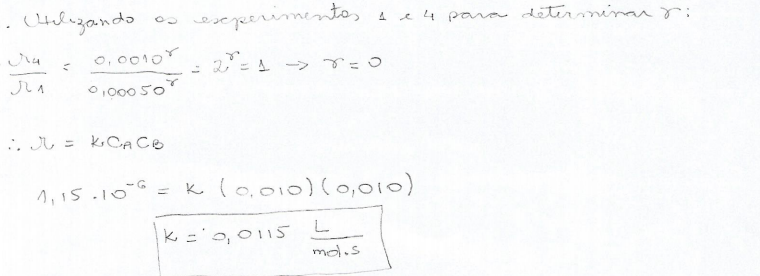 . Utilizando os experimentos 1 e 4 para determinar γ:
r₄/r₁ = 0,0010^γ/0,00050^γ = 2^γ = 1 → γ = 0
∴ r = kCₐC_B
1,15 . 10⁻⁶ = k (0,010)(0,010)
k = 0,0115 L/mol.s